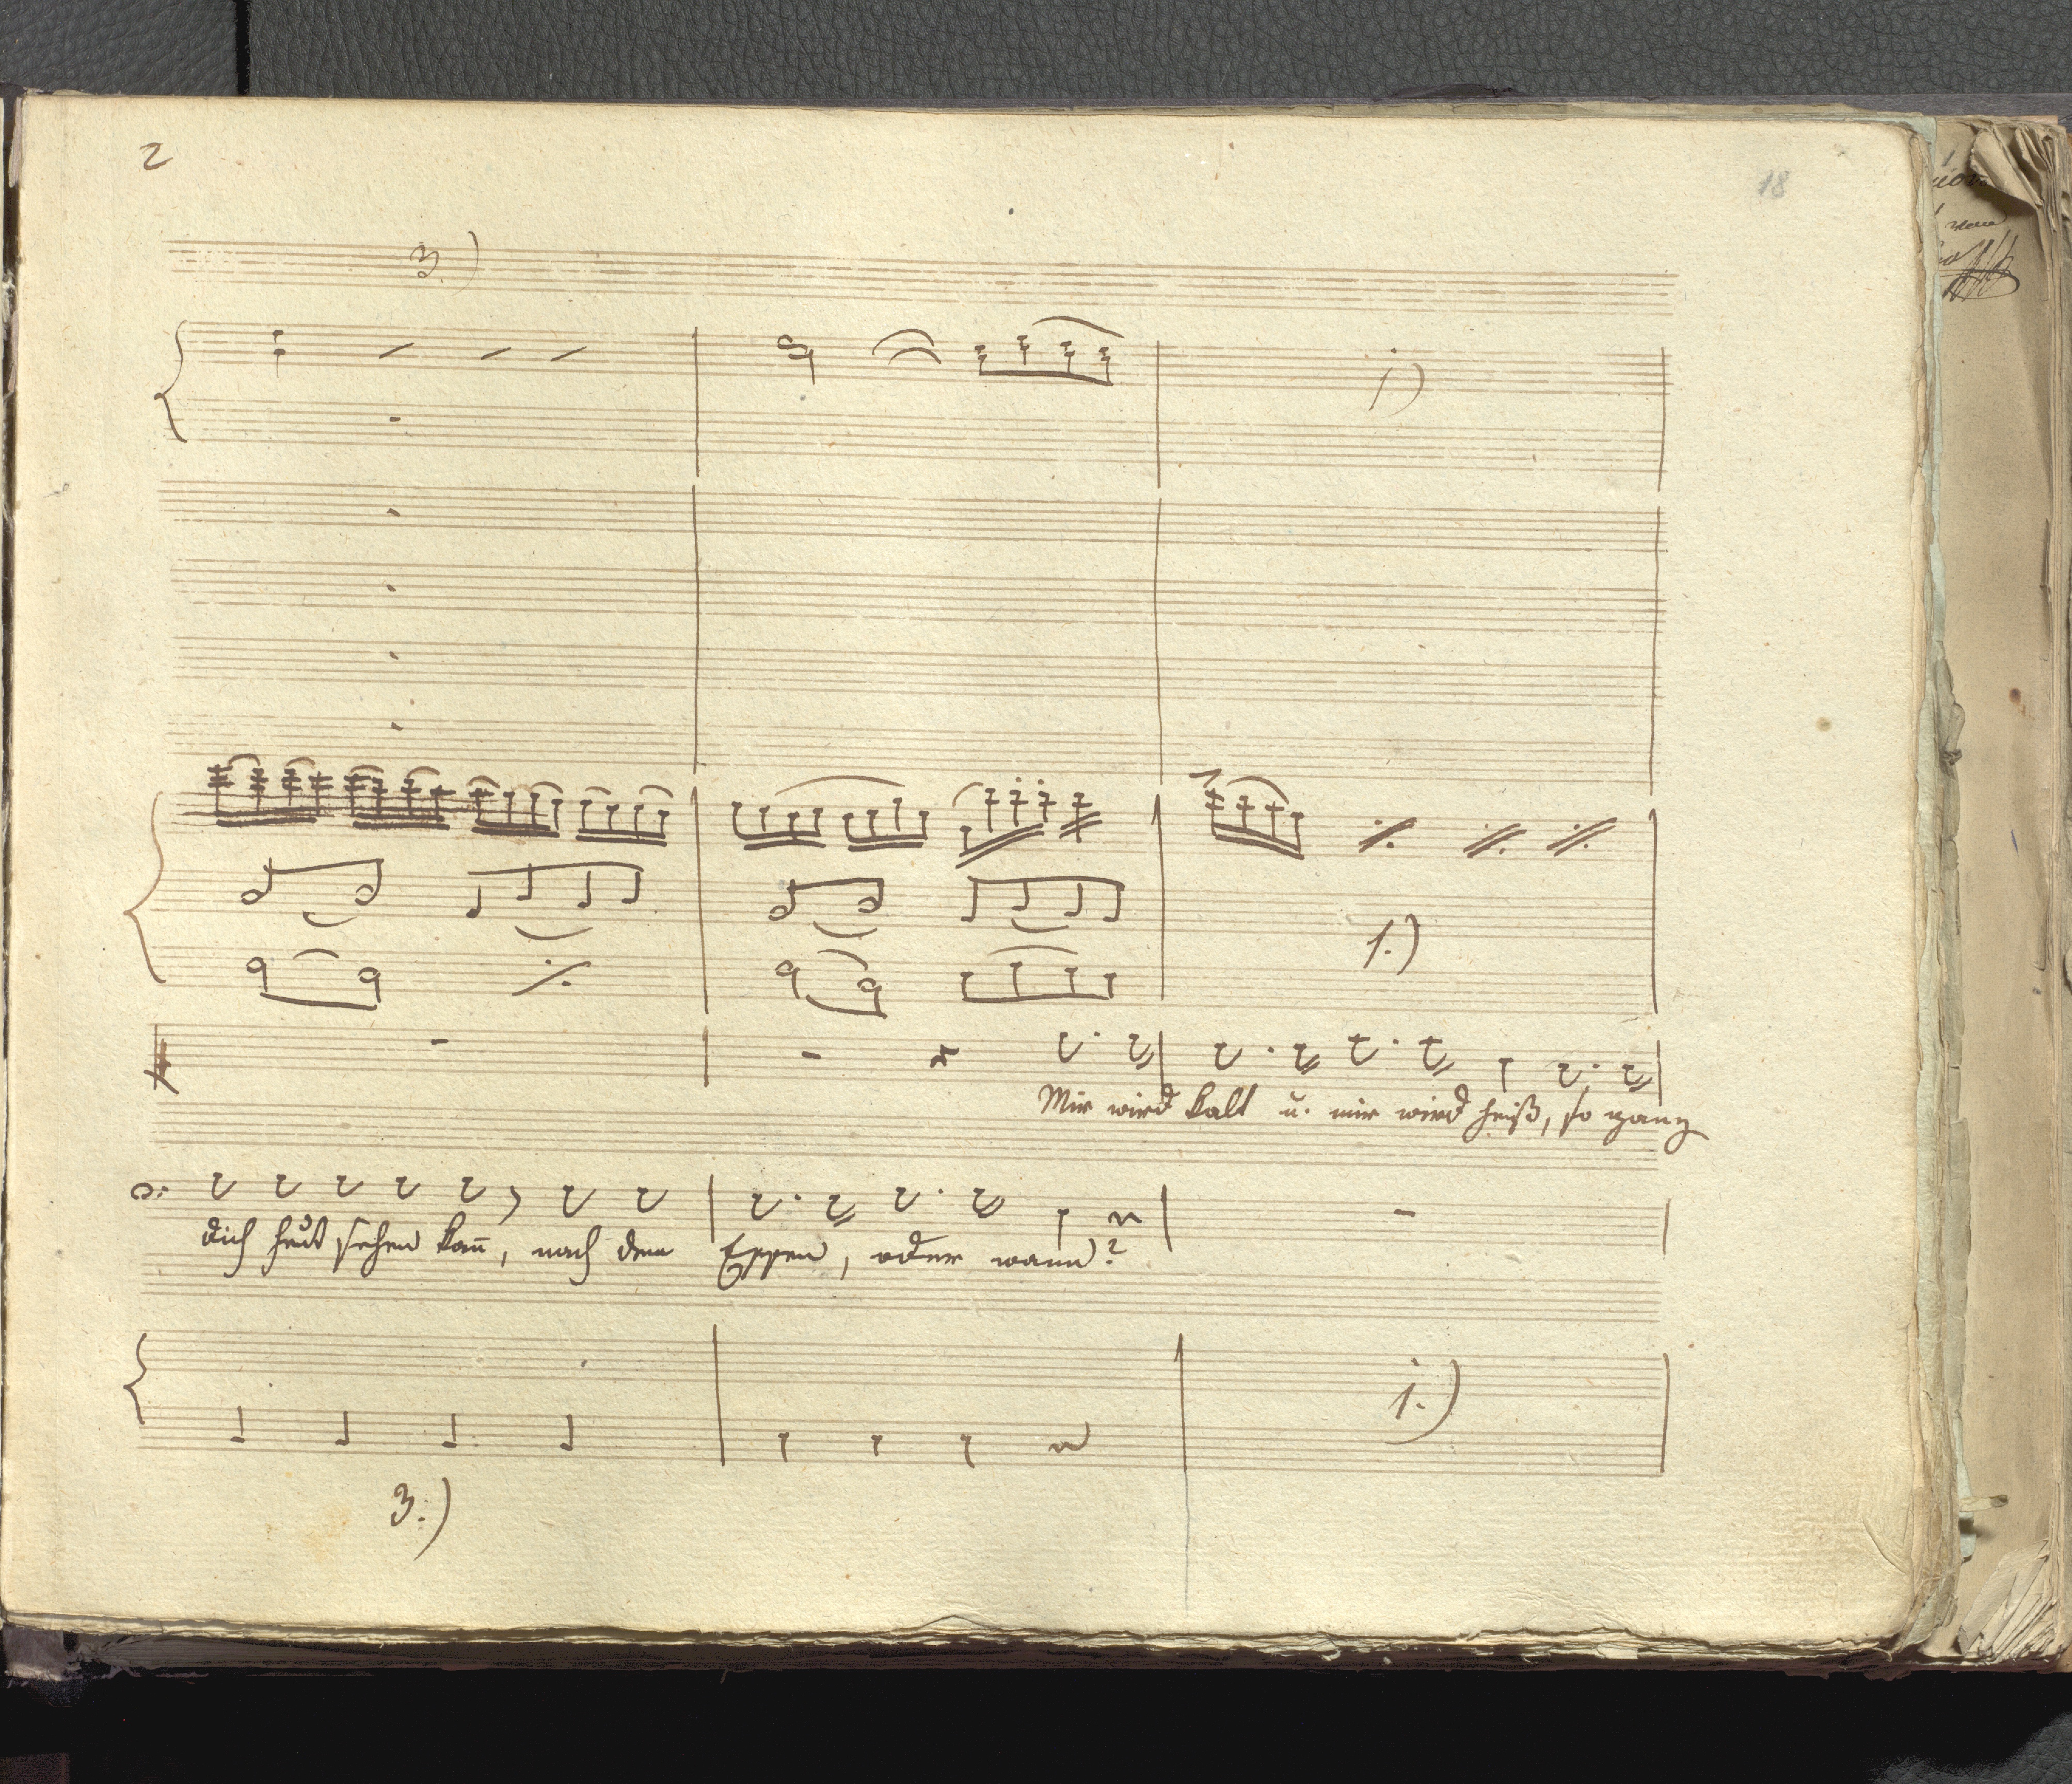 2
18
3)
1)
1.)
Mir wird kalt u. mir wird heiß, so ganz
dich heut sehen kañ, nach dem Essen, oder wann?
1.)
3.)